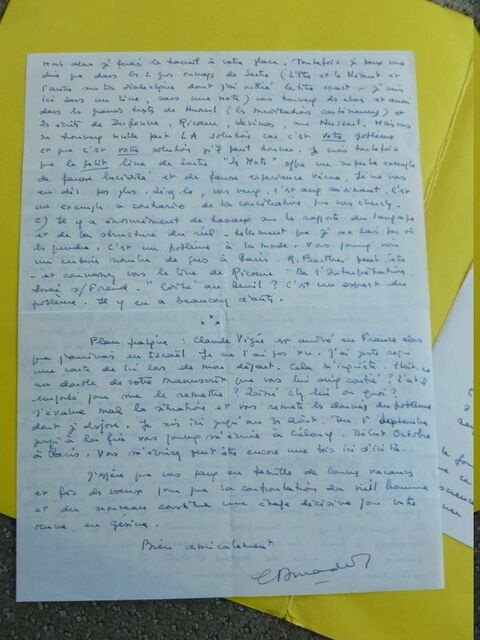 Mais alors je ferais le travail à votre place. Toutefois je peux vous
dire que dans les 2 gros ouvrages de Sartre (L'Etre et le Néant et
l'autre sur la dialectique dont j'ai oublié le titre exact - je suis
ici sans un livre, sans une note) vous trouverez des choses et aussi
dans les grands textes de Husserl (les méditations cartésiennes) et
les écrits de Dufrenne, Ricoeur, Levinas, sur Husserl. Mais vous
ne trouverez nulle part LA solution car c'est votre problème
et que c'est votre solution qu'il faut donner. Je crois toutefois
que le petit livre de Sartre "Les Mots" offre un superbe exemple
de fausse lucidité et de fausse expérience vécue. Je ne vous
en dis pas plus. Lisez-le, vous verrez, c'est assez saisissant. C'est
un exemple a contrario de la conciliation que vous cherchez.
c) Il y a énormément de travaux sur le rapport du langage
et de la structure du réel - tellement que je ne sais par où
les prendre. C'est un problème à la mode. Vous pouvez voir
un certain nombre de gens à Paris. R. Barthes peut-être
- et connaissez vous le livre de Ricoeur "De l'Interprétation.
Essai s/Freud." édité au Seuil ? C'est un aspect du
problème. Il y en a beaucoup d'autres.
* * *
Plan pratique : Claude Vigée est arrivé en France alors
que j'arrivais en Israël. Je ne l'ai pas vu. J'ai juste reçu
une carte de lui lors de mon départ. Cela m'inquiète. Etait-ce
un double de votre manuscrit que vous lui aviez confié ? L'a-t-il
emporté pour me le remettre ? Laissé chez lui ou quoi ?
J'évalue mal la situation et vous remets les données du problème
dont je dispose. Je suis ici jusqu'au 31 Août. Du 1er septembre
jusqu'à la fin vous pouvez m'écrire à Début Octobre
à Paris. Vous m'écrirez peut être encore une fois ici d'ici là.
J'espère que vous passez en famille de bonnes vacances
et fais des voeux pour que la confrontation du vieil homme
et du nouveau constitue une étape décisive pour votre
oeuvre en gésine.
Bien amicalement